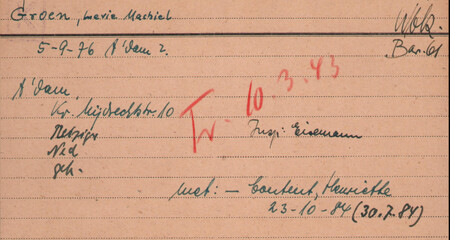 Groen, Levie Machiel
Wbk.
5-9-76 A'dam 2.
Bar. 61
A'dam,
Kr. Mijdrechtstr. 10
Tr. 10.3.43
Ned
geh.
Met: - Content, Henriette
23-10-84 (30.7.84)